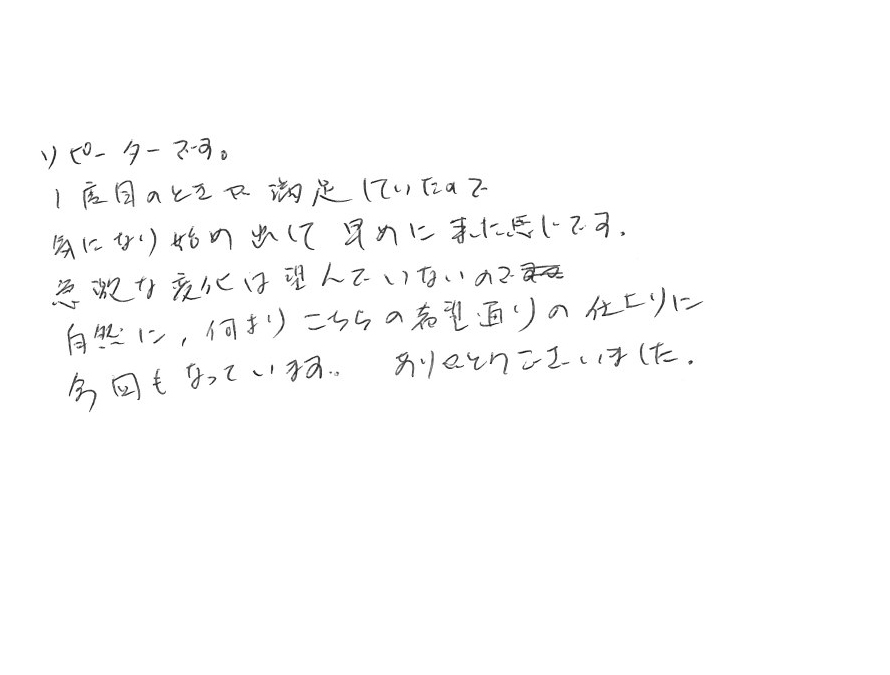 リピーターです。
1度目のときに満足していたので
気になり始め出して早めに来た感じです.
急激な変化は望んでいないので
自然に、何よりこちらの希望通りの仕上りに
今回もなっています。 ありがとうございました.